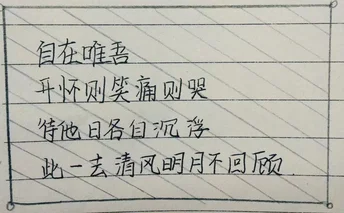 自在唯吾
开怀则笑痛则哭
待他日各自沉浮
此一去清风明月不回顾